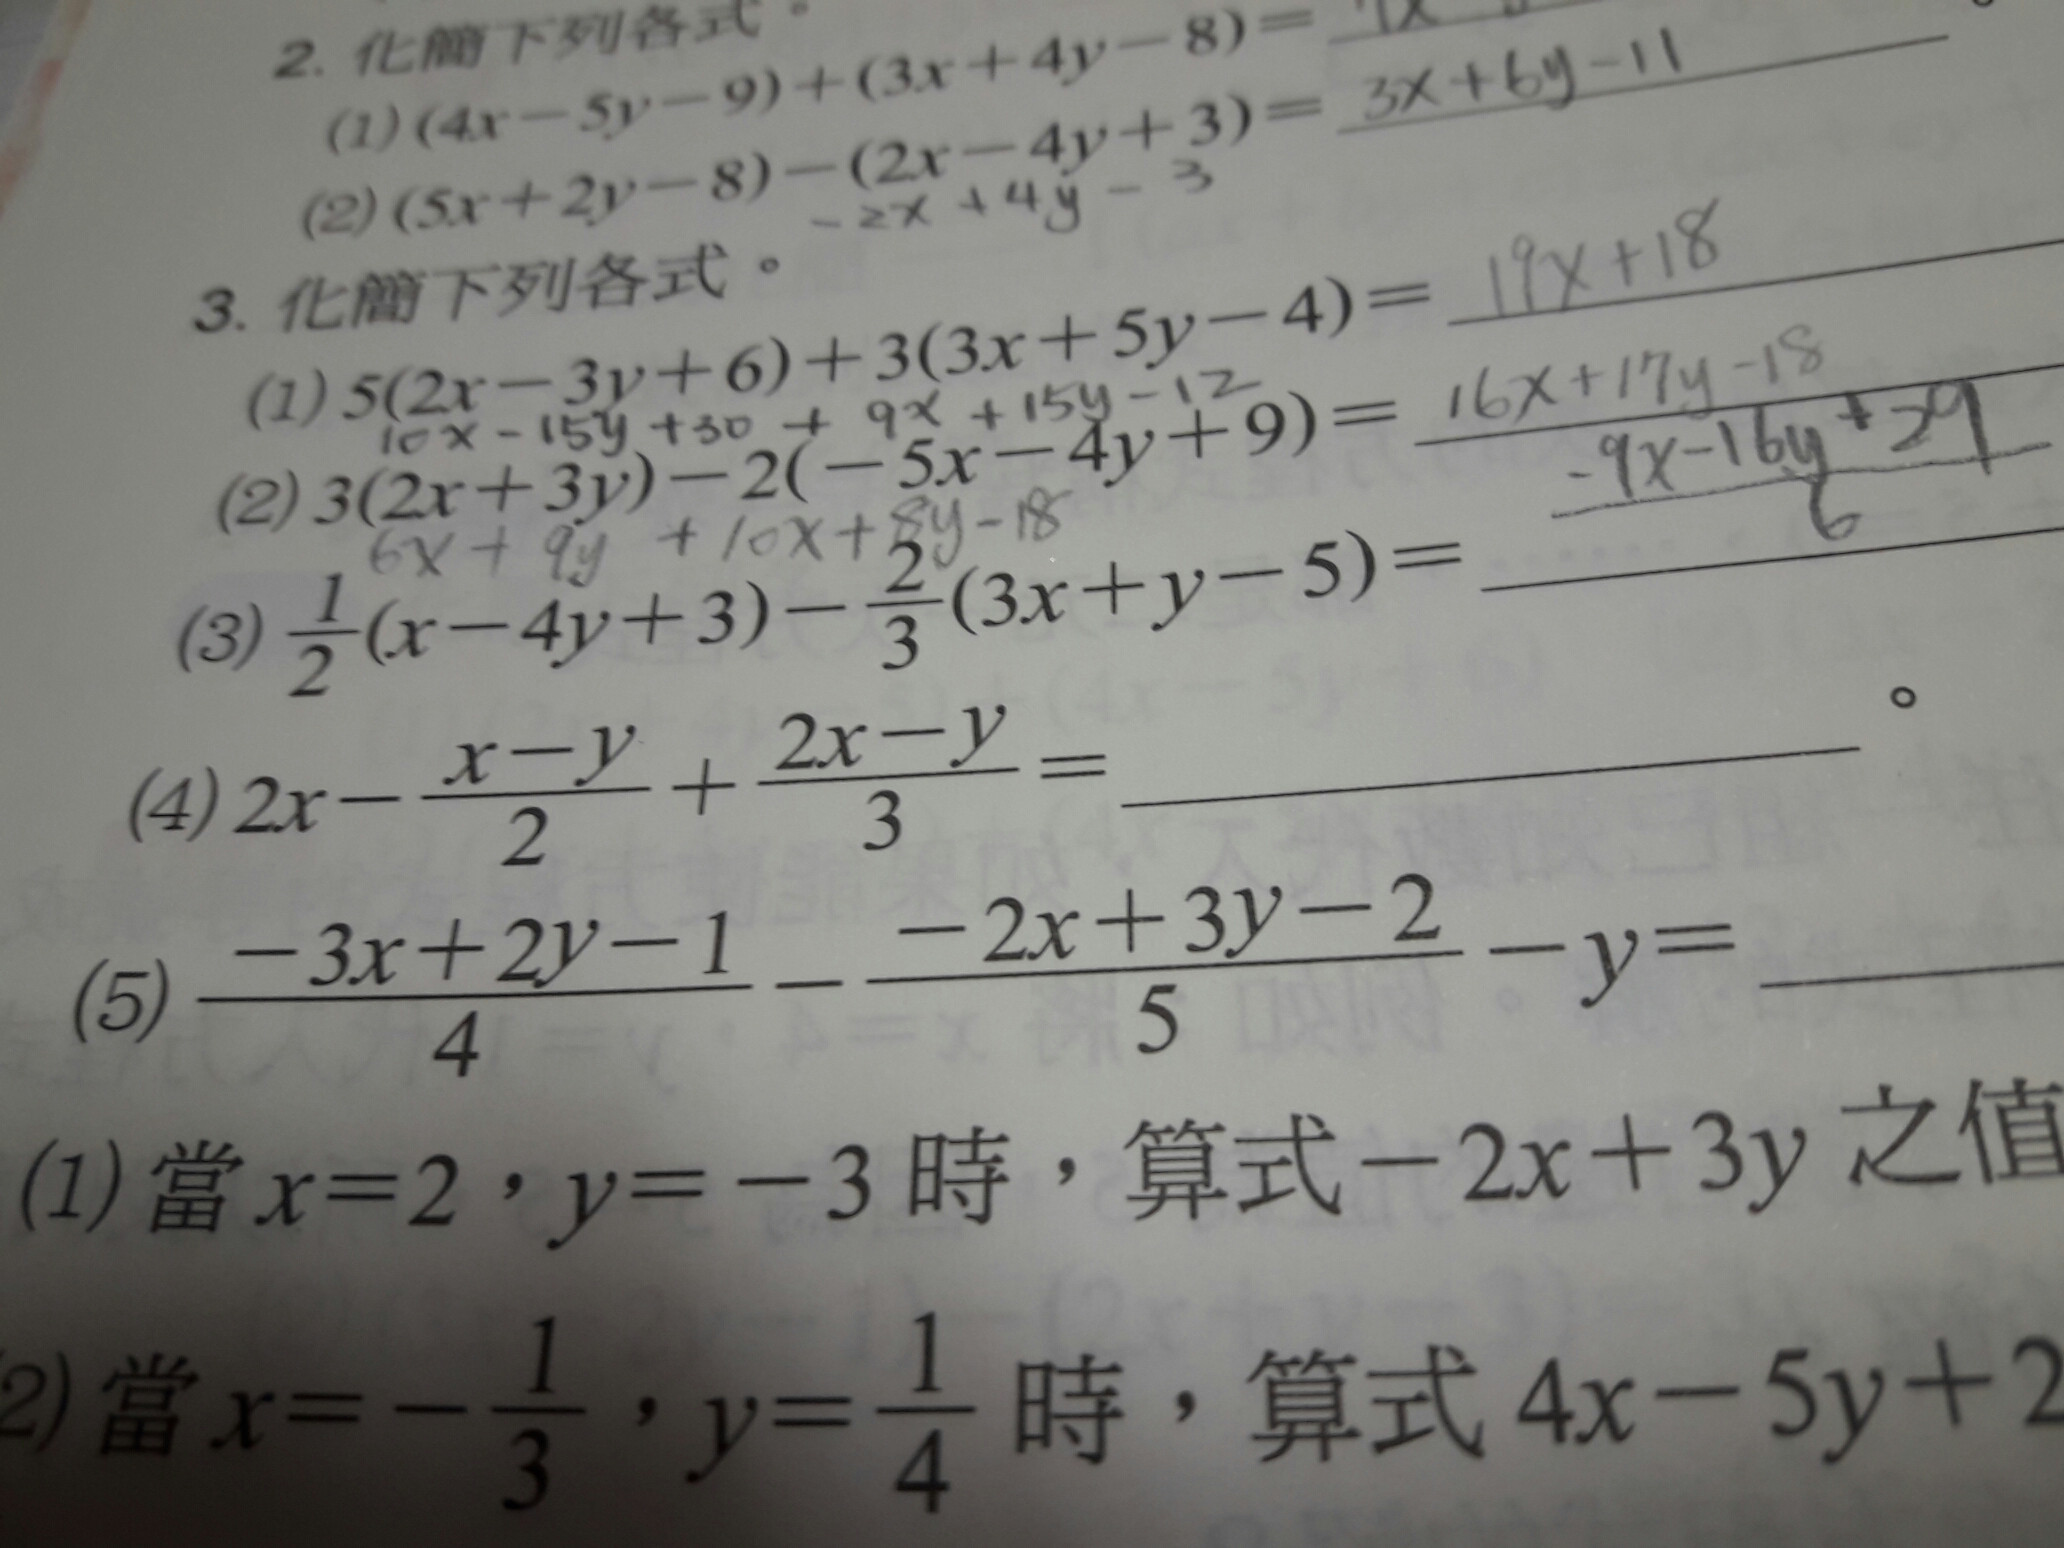 2. 化簡下列各式。
(1) (4x－5y－9)＋(3x＋4y－8)＝
(2) (5x＋2y－8)－(2x－4y＋3)＝ 3x+6y-11
-2x +4y - 3
3. 化簡下列各式。
(1) 5(2x－3y＋6)＋3(3x＋5y－4)＝ 19x+18
10x -15y +30 + 9x +15y -12
(2) 3(2x＋3y)－2(－5x－4y＋9)＝ 16x+17y-18
6x + 9y +10x+8y-18
(3) 1/2(x－4y＋3)－2/3(3x＋y－5)＝ (-9x-16y+29)/6
(4) 2x－(x－y)/2＋(2x－y)/3＝ 。
(5) (－3x＋2y－1)/4－(－2x＋3y－2)/5－y＝
(1) 當 x＝2，y＝－3 時，算式－2x＋3y 之值
2) 當 x＝－1/3，y＝1/4 時，算式 4x－5y＋2